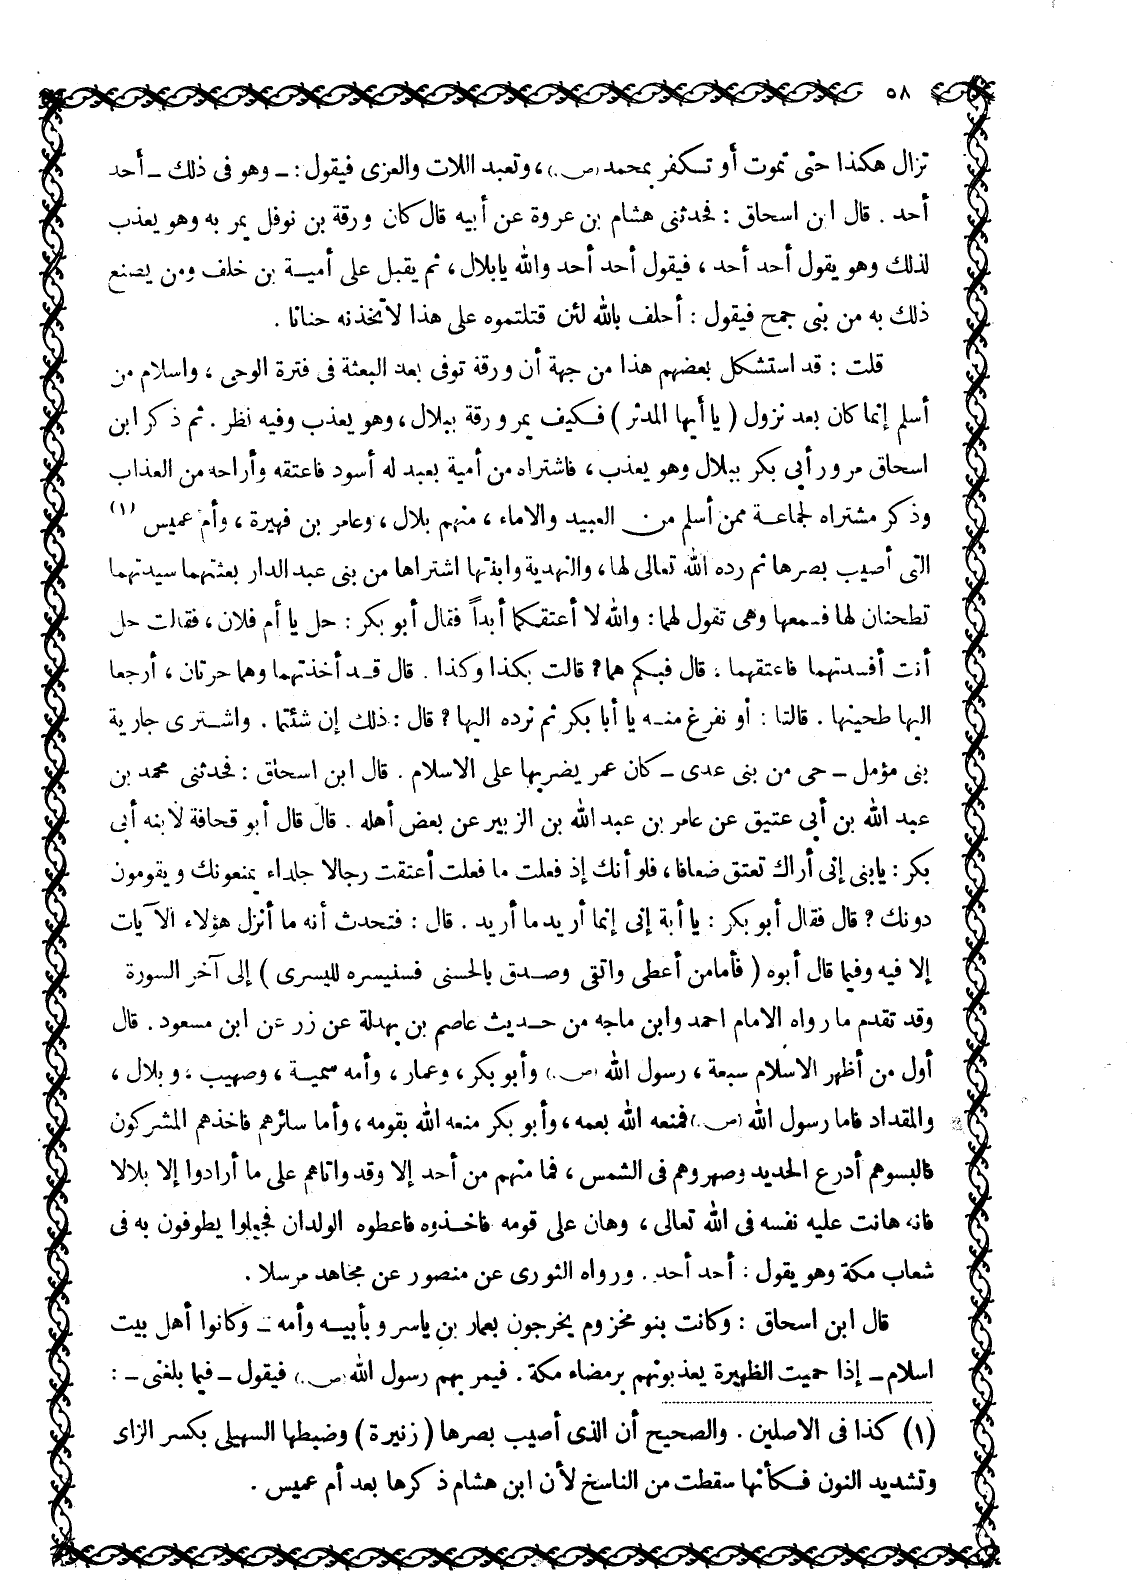 ٥٨
تزال هكذا حتى تموت أو تكفر بمحمد (ص.)، وتعبد اللات والعزى فيقول: ـ وهو فى ذلك ـ أحد
أحد . قال ابن اسحاق : فحدثنى هشام بن عروة عن أبيه قال كان ورقة بن نوفل يمر به وهو يعذب
لذلك وهو يقول أحد أحد ، فيقول أحد أحد والله يابلال، ثم يقبل على أمية بن خلف ومن يصنع
ذلك به من بنى جمح فيقول : أحلف بالله لئن قتلتموه على هذا لاتخذنه حنانا .
قلت : قد استشكل بعضهم هذا من جهة أن ورقة توفى بعد البعثة فى فترة الوحى ، واسلام من
أسلم إنما كان بعد نزول ( يا أيها المدثر ) فكيف يمر ورقة ببلال، وهو يعذب وفيه نظر . ثم ذكر ابن
اسحاق مرور أبى بكر ببلال وهو يعذب، فاشتراه من أمية بعبد له أسود فاعتقه وأراحه من العذاب
وذكر مشتراه لجماعة ممن أسلم من العبيد والاماء ، منهم بلال ، وعامر بن فهيرة ، وأم عميس (١)
التى أصيب بصرها ثم رده الله تعالى لها، والنهدية وابنتها اشتراها من بنى عبد الدار بعثتهما سيدتهما
تطحنان لها فسمعها وهى تقول لهما: والله لا أعتقكما أبداً فقال أبو بكر : حل يا أم فلان ، فقالت حل
أنت أفسدتهما فاعتقهما ، قال فبكم هما? قالت بكذا وكذا . قال قد أخذتهما وهما حرتان ، أرجعا
اليها طحينها . قالتا : أو نفرغ منه يا أبا بكر ثم نرده اليها ? قال : ذلك إن شئتما . واشترى جارية
بنى مؤمل ـ حى من بنى عدى ـ كان عمر يضربها على الاسلام . قال ابن اسحاق : فحدثنى محمد بن
عبد الله بن أبى عتيق عن عامر بن عبد الله بن الزبير عن بعض أهله . قال قال أبو قحافة لابنه أبى
بكر : يابنى إنى أراك تعتق ضعافا، فلو أنك إذ فعلت ما فعلت أعتقت رجالا جلداء يمنعونك ويقومون
دونك ? قال فقال أبو بكر : يا أبة إنى إنما أريد ما أريد . قال : فتحدث أنه ما أنزل هؤلاء الآيات
إلا فيه وفيما قال أبوه ( فأمامن أعطى واتقى وصدق بالحسنى فسنيسره لليسرى ) إلى آخر السورة
وقد تقدم ما رواه الامام احمد وابن ماجه من حديث عاصم بن بهدلة عن زر عن ابن مسعود . قال
أول من أظهر الاسلام سبعة ، رسول الله (ص.) وأبو بكر ، وعمار ، وأمه سمية ، وصهيب ، وبلال ،
والمقداد فاما رسول الله (ص.) فمنعه الله بعمه ، وأبو بكر منعه الله بقومه ، وأما سائرهم فاخذهم المشركون
فالبسوهم أدرع الحديد وصهروهم فى الشمس ، فما منهم من أحد إلا وقد واتاهم على ما أرادوا إلا بلالا
فانه هانت عليه نفسه فى الله تعالى ، وهان على قومه فاخذوه فاعطوه الولدان فجعلوا يطوفون به فى
شعاب مكة وهو يقول : أحد أحد . ورواه الثورى عن منصور عن مجاهد مرسلا .
قال ابن اسحاق : وكانت بنو مخزوم يخرجون بعمار بن ياسر وبأبيه وأمه ـ وكانوا أهل بيت
اسلام ـ إذا حميت الظهيرة يعذبونهم برمضاء مكة . فيمر بهم رسول الله (ص.) فيقول ـ فيما بلغنى ـ :
(١) كذا فى الاصلين . والصحيح أن الذى أصيب بصرها ( زنيرة ) وضبطها السهيلى بكسر الزاى
وتشديد النون فكأنها سقطت من الناسخ لأن ابن هشام ذكرها بعد أم عميس .